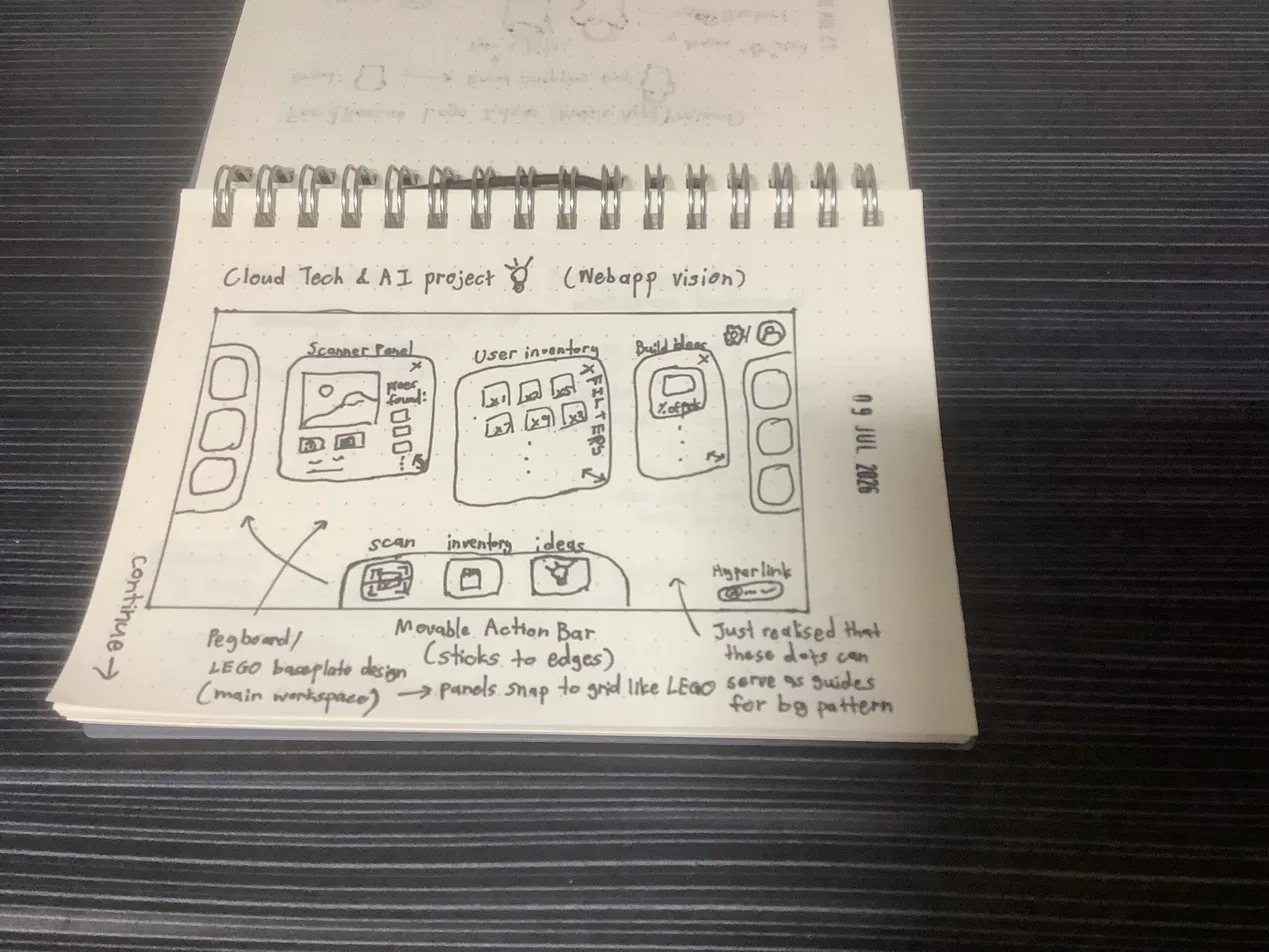 Cloud Tech & AI project (Webapp vision)
Scanner Panel
X
pieces found:
User inventory
X FILTERS
x1 x2 x5
x7 x9 x3
Build ideas
X
/
09 JUL 2026
scan inventory ideas
Hyperlink
continue →
Pegboard/
LEGO baseplate design
(main workspace) → panels snap to grid like LEGO
Movable Action Bar
(sticks to edges)
Just realised that
these dots can
serve as guides
for bg pattern